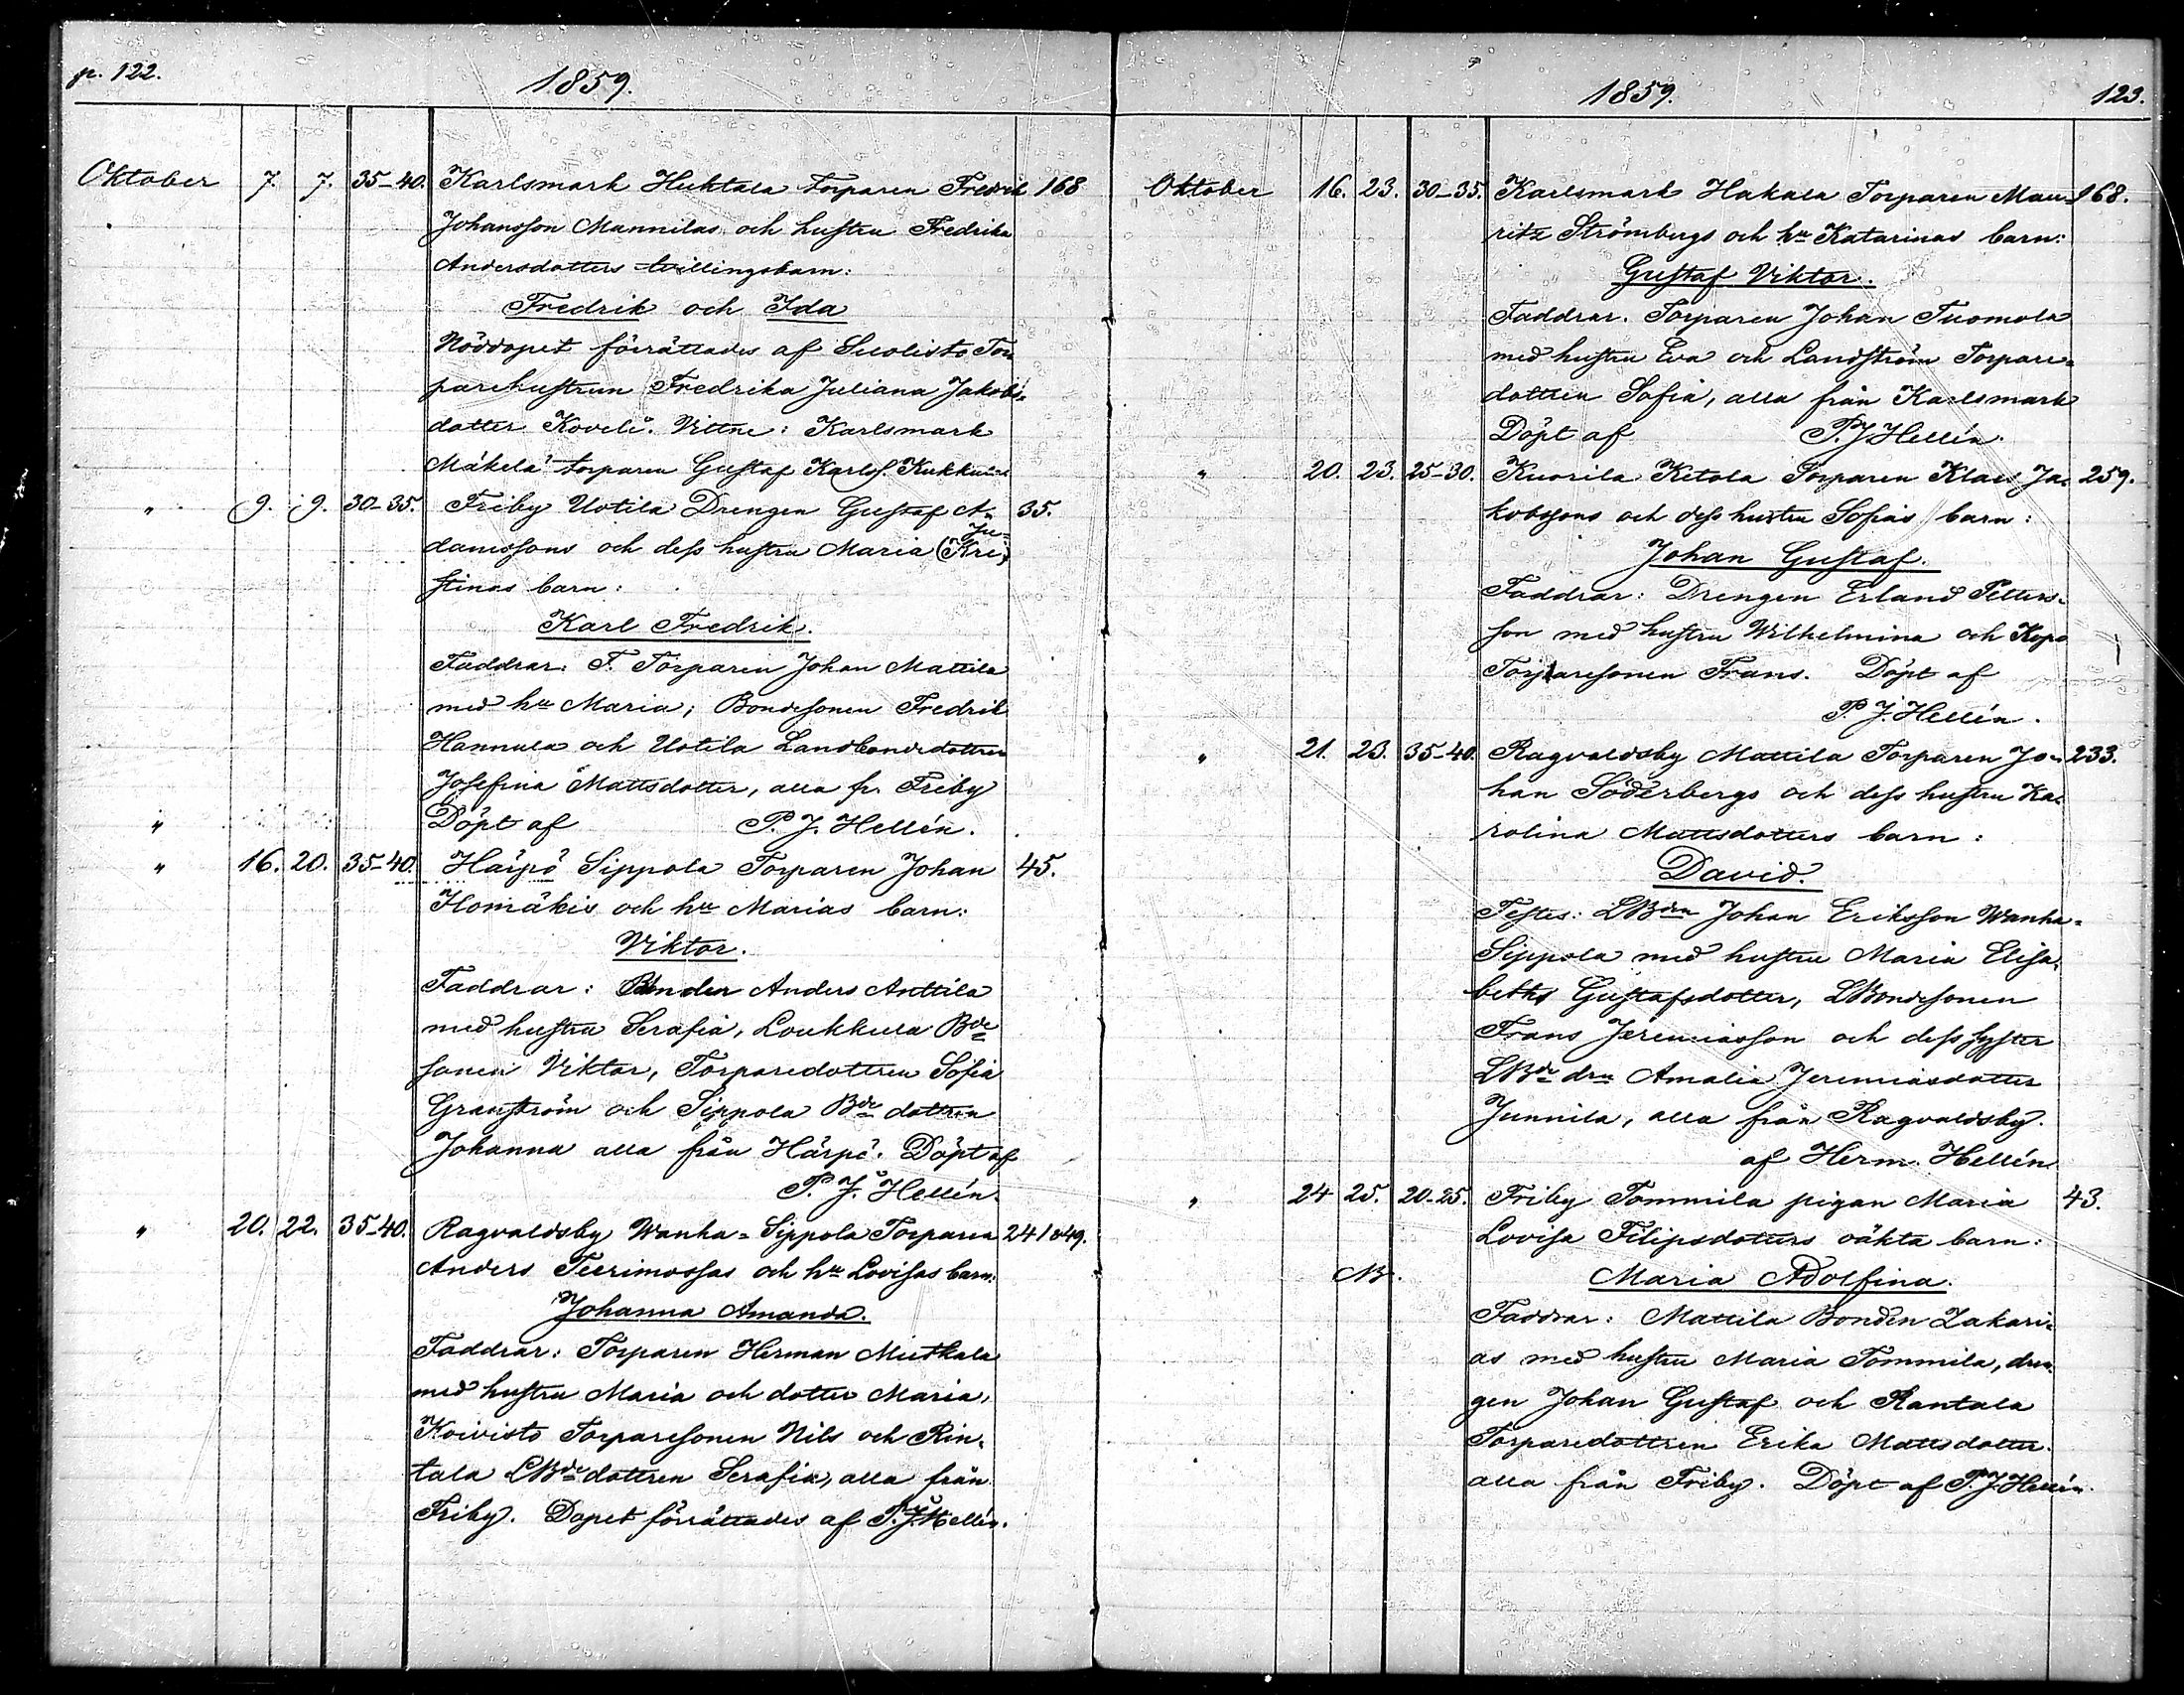 p. 122.
1859.
Oktober 7. 7. 35-40. Karlsmark Huktala torparen Fredrik 168
Johansson Mannilas och hustru Fredrika
Andersdotters tvillingsbarn:
Fredrik och Ida
Nöddopet förrättades af Suolisto Tor
parehustrun Fredrika Juliana Jakobs-
dotter Koveli. Vittne: Karlsmark
Mäkelä torparen Gustaf Karlss.
" 9. 9. 30-35. Friby Uotila Drengen Gustaf A- 35.
damssons och dess hustru Maria (Kri-
stinas barn:
Karl Fredrik.
Faddrar: F. Torparen Johan Mattila
med hu Maria; Bondesonen Fredrik
Hannula och Uotila Landbondedottren
Josefina Mattsdotter, alla fr. Friby
" Döpt af P. J. Hellén.
" 16. 20. 35-40. Härpö Sippola Torparen Johan 45.
Ilomäkis och hu Marias barn:
Viktor.
Faddrar: Bonden Anders Anttila
med hustru Serafia, Loukkura Bde
sonen Viktor, Torparedottren Sofia
Granström och Sippola Bde dottren
Johanna alla från Härpö. Döpt af
P. J. Hellén.
" 20. 22. 35-40. Ragvaldsby Wanha-Sippola Torparen 241 249.
Anders Teerimossas och hu Lovisas barn:
Johanna Amanda.
Faddrar: Torparen Herman Mutkala
med hustru Maria och dotter Maria,
Koivisto Torparesonen Nils och Rin-
tala LBde dottren Serafia, alla från
Friby. Dopet förrättades af P. J. Hellén.
1859. 123.
Oktober 16. 23. 30-35. Karlsmark Hakala Torparen Mau- 168.
ritz Strömbergs och hu Katarinas barn:
Gustaf Viktor.
Faddrar. Torparen Johan Tuomola
med hustru Eva och Landström Torpare-
dottren Sofia, alla från Karlsmark
Döpt af P. J. Hellén.
" 20. 23. 25-30. Kuorila Ketola Torparen Klas Ja- 259.
kobssons och dess hustru Sofias barn:
Johan Gustaf.
Faddrar: Drengen Erland Petters-
son med hustru Wilhelmina och Kopo
Torparesonen Frans. Döpt af
P. J. Hellén.
" 21. 23. 35-40. Ragvaldsby Mattila Torparen Jo- 233.
han Söderbergs och dess hustru Ka-
rolina Mattsdotters barn:
David.
Testes: LBdn Johan Eriksson Wanha-
Sippola med hustru Maria Elisa-
beths Gustafsdotter, LBondesonen
Frans Jeremiasson och dess syster
LBde drn Amalia Jeremiasdotter
Junnila, alla från Ragvaldsby.
af Herm. Hellén
" 24 25. 20-25. Friby Tommila pigan Maria 43.
Lovisa Filipsdotters oäkta barn:
NB. Maria Adolfina.
Faddrar: Mattila Bonden Zakari-
as med hustru Maria Tommila, dren-
gen Johan Gustaf och Rantala
Torparedottren Erika Mattsdotter.
alla från Friby. Döpt af P. J. Hellén.